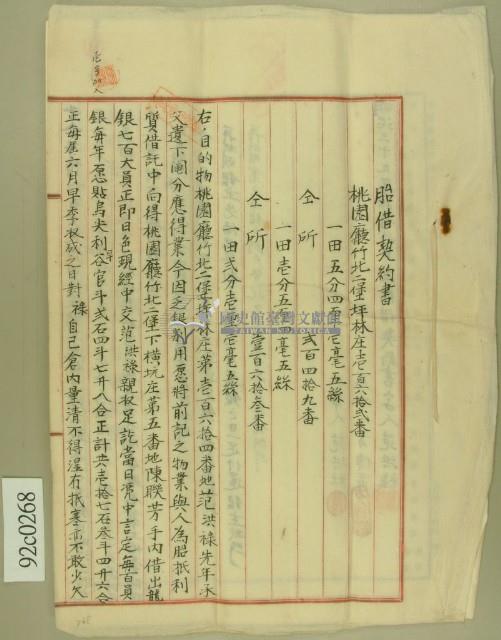 胎借契約書
桃園廳竹北二堡坪林庄壱百六拾弐番
一田五分四厘壱毫五絲
仝所 弐百四拾九番
一田壱分五厘 毫五絲
仝所 壹百六拾叁番
一田弐分壱厘壱毫五絲
右ノ目的物桃園廳竹北二堡坪林庄第壱百六拾四番地范洪祿先年承
父遺下鬮分應得業今因乏銀別用愿將前記之物業與人為胎抵利
質借託中向得桃園廳竹北二堡下橫坑庄第五番地陳滕芳手內借出龍
銀七百大員正即日色現經中交范洪祿親收足訖當日凴中言定每百員
銀每年愿貼烏尖利谷官斗弐石四斗七升八合正計共壱拾七石叁斗四升六合
正每年六月早季收成之日對祿自己倉內量清不得濕冇抵塞亦不敢少欠
國史館臺灣文獻館
TAIWAN HISTORICA
92c0268